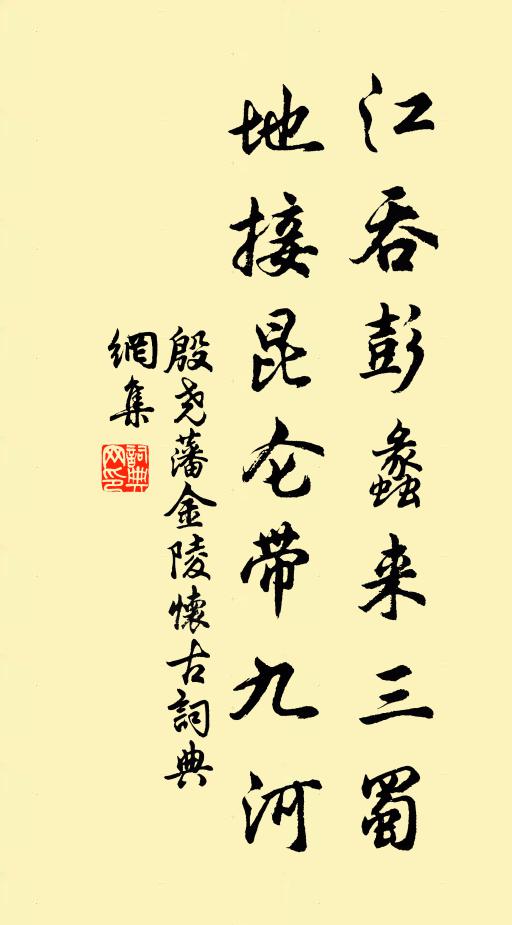 江吞彭蠡来三蜀
地接昆仑带九河
殷尧藩金陵懷古詞典
網集
詞典
网印